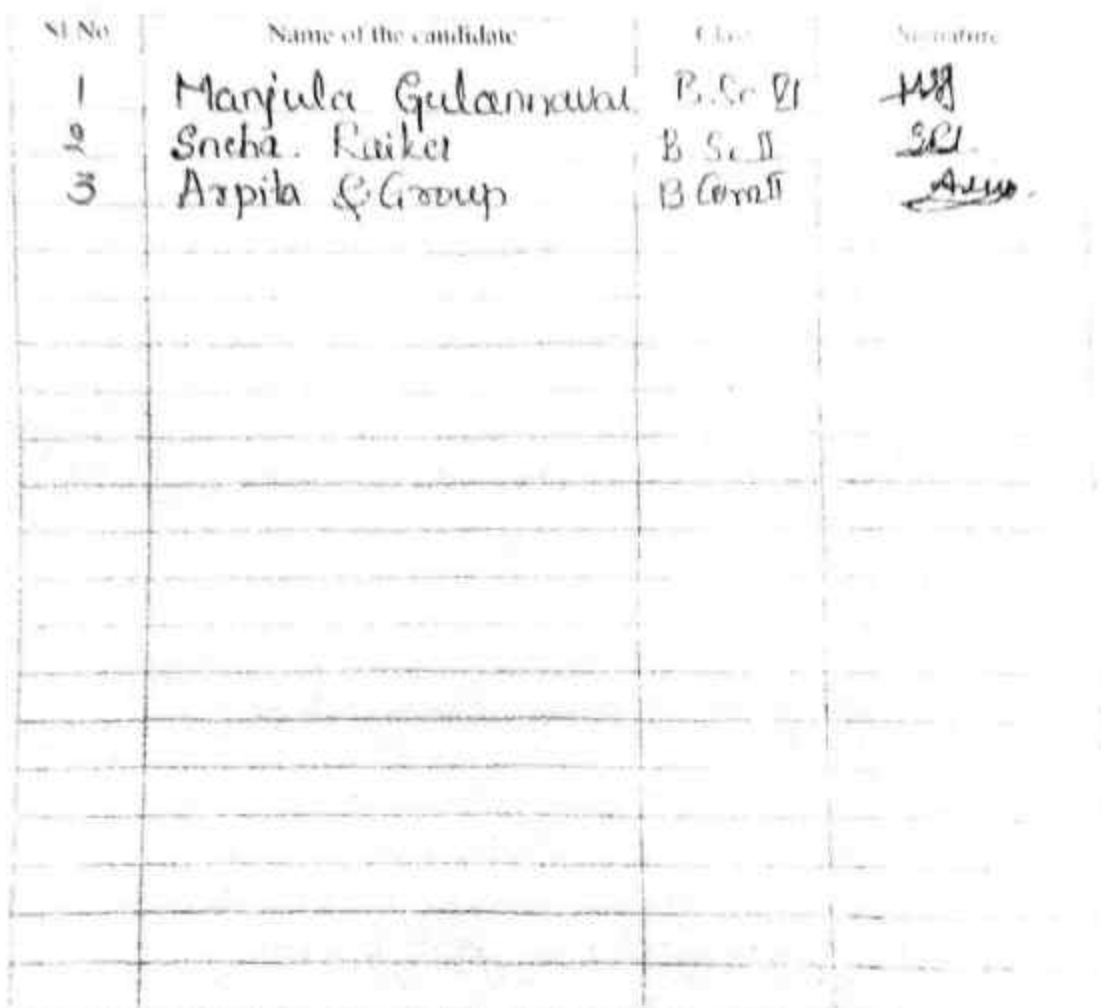 Sl No Name of the candidate Class Signature
1 Manjula Gulannavar B.Sc VI
2 Sneha. Raiker B.Sc II
3 Arpita & Group B Com II